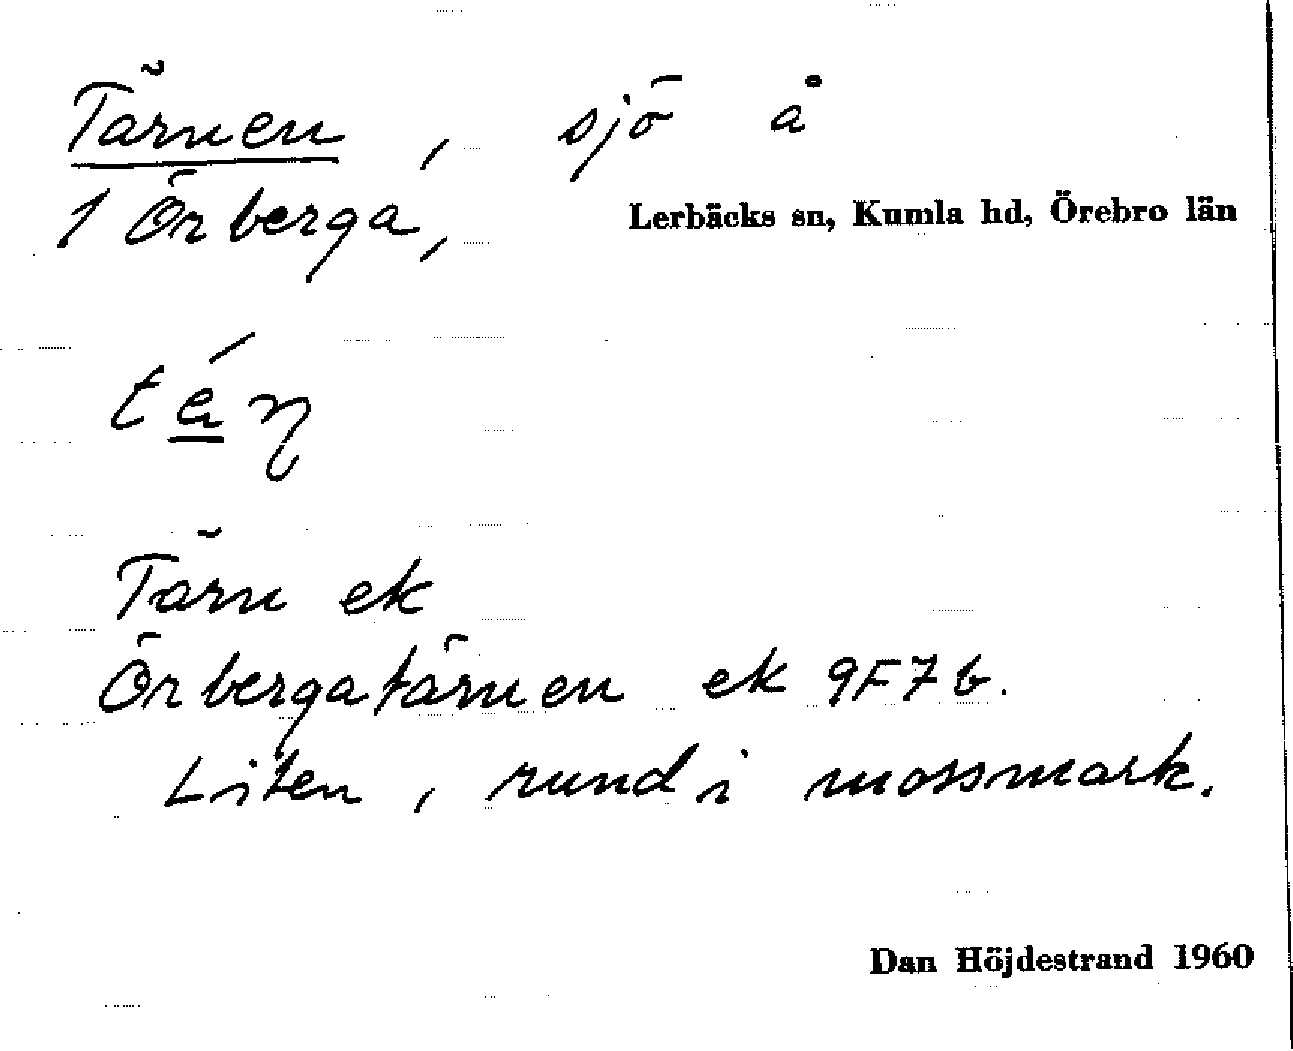 Tärnen, sjö å
1 Örberga,
Lerbäcks sn, Kumla hd, Örebro län
Tärn ek
Örbergatärnen ek 9F7b.
Liten, rund i mossmark.
Dan Höjdestrand 1960